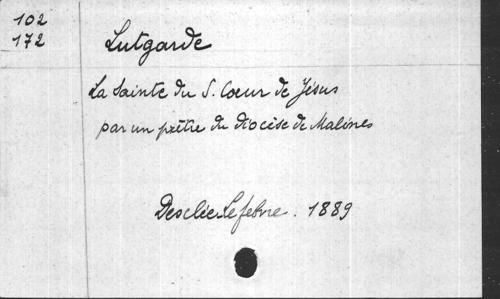 102
172
Lutgarde
La Sainte du S. Cœur de Jésus
par un prêtre du diocèse de Malines
Desclée Lefebvre. 1889